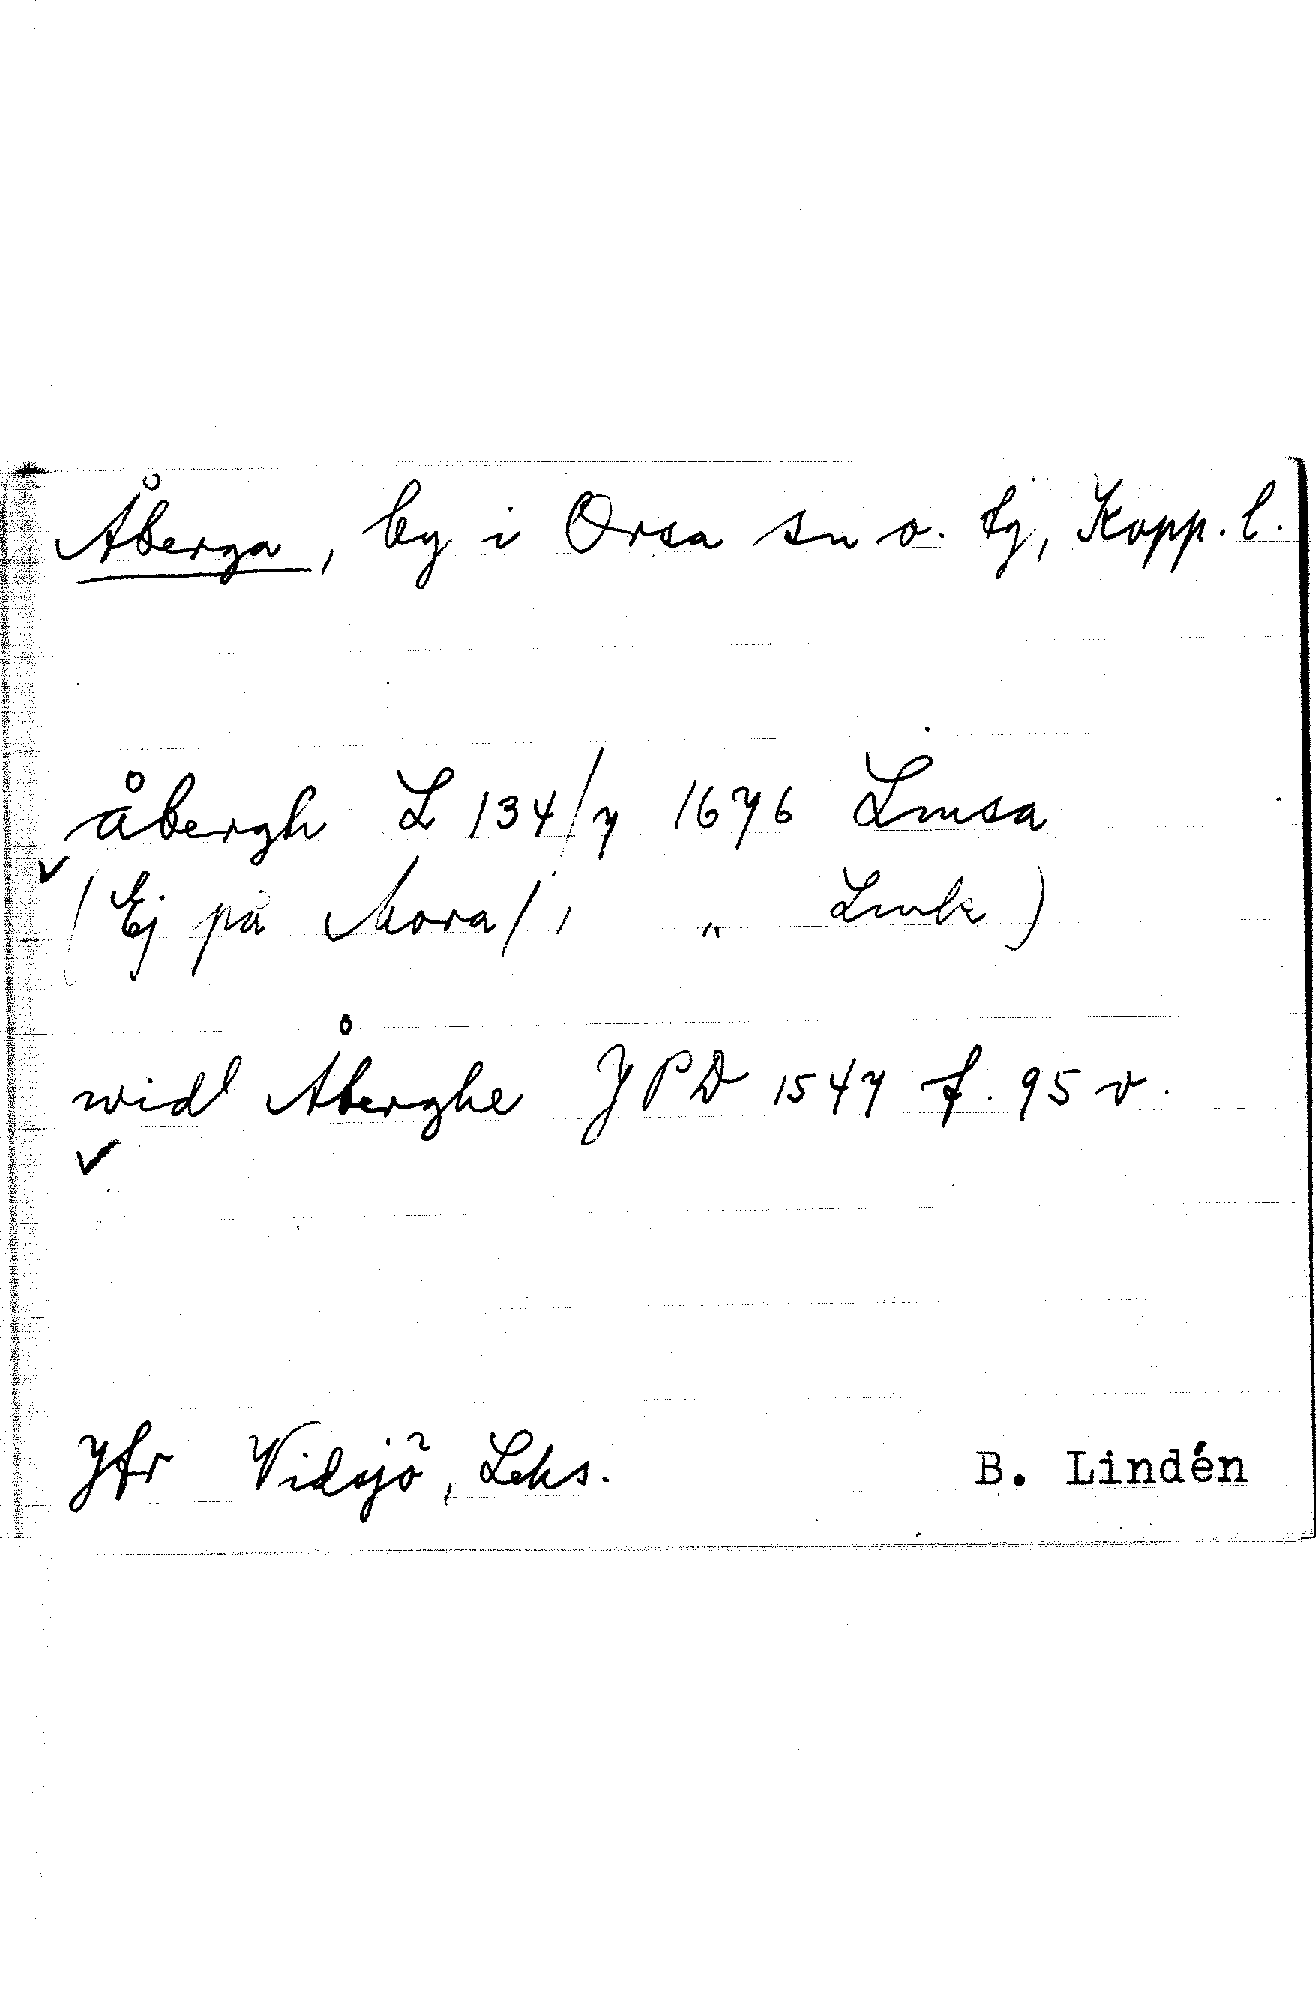 Åberga, by i Orsa sn o. tg, Kopp. l.
åbergh L 134/7 1676 Lmsa
(Ej på Mora/1 „ Lmk)
widl Åberghe JPD 1547 f. 95 v.
Jfr Vidsjö, Leks. B. Lindén